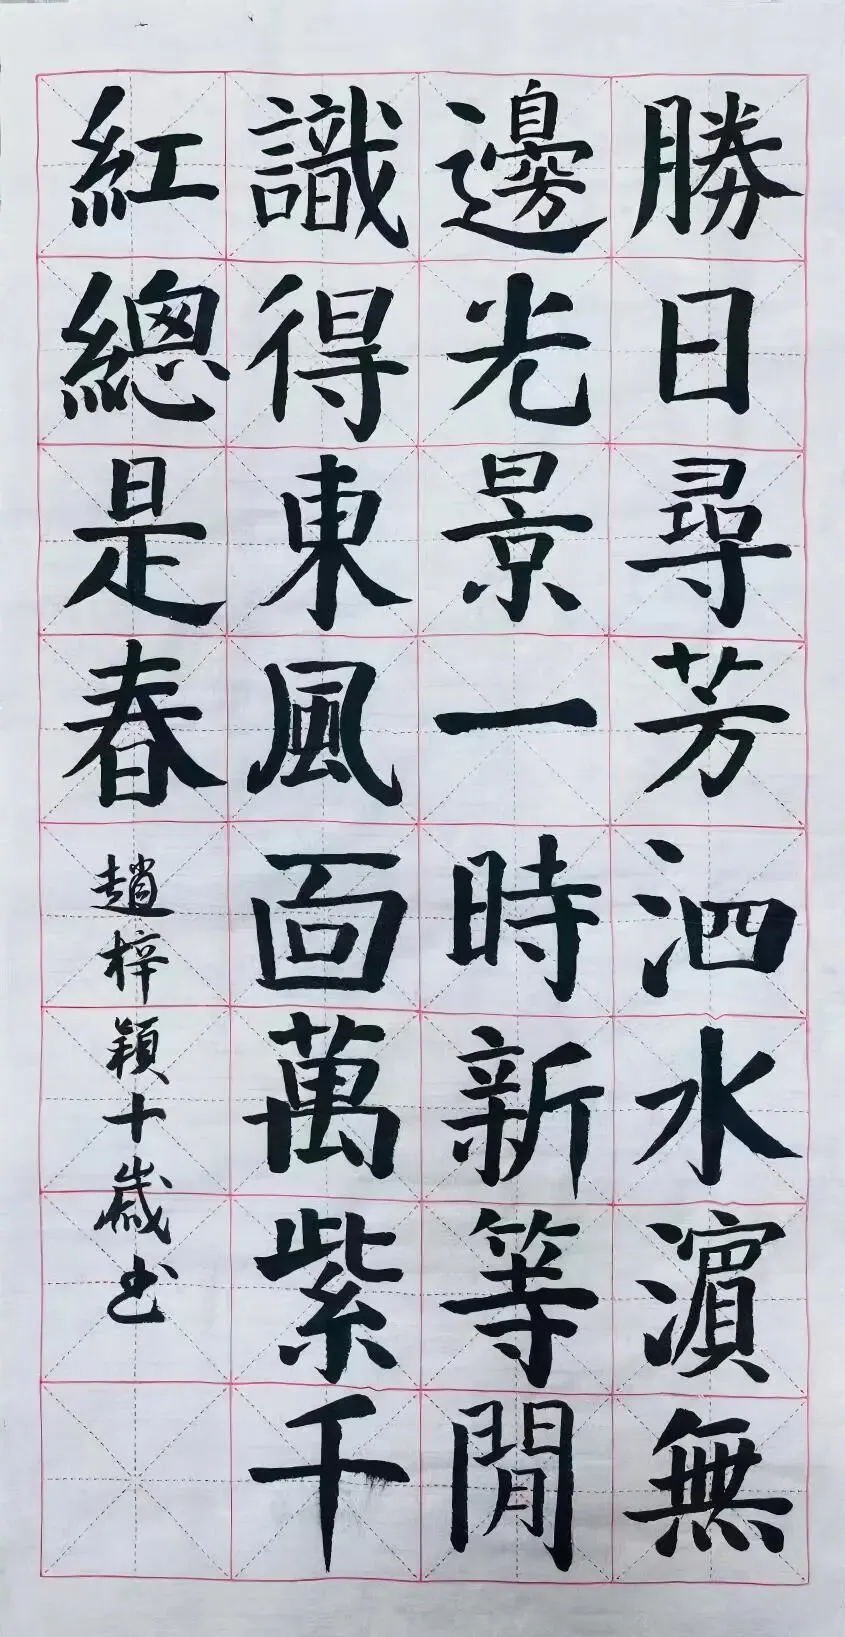 勝日尋芳泗水濵無
邊光景一時新等閒
識得東風面萬紫千
紅總是春
趙梓穎十歲书